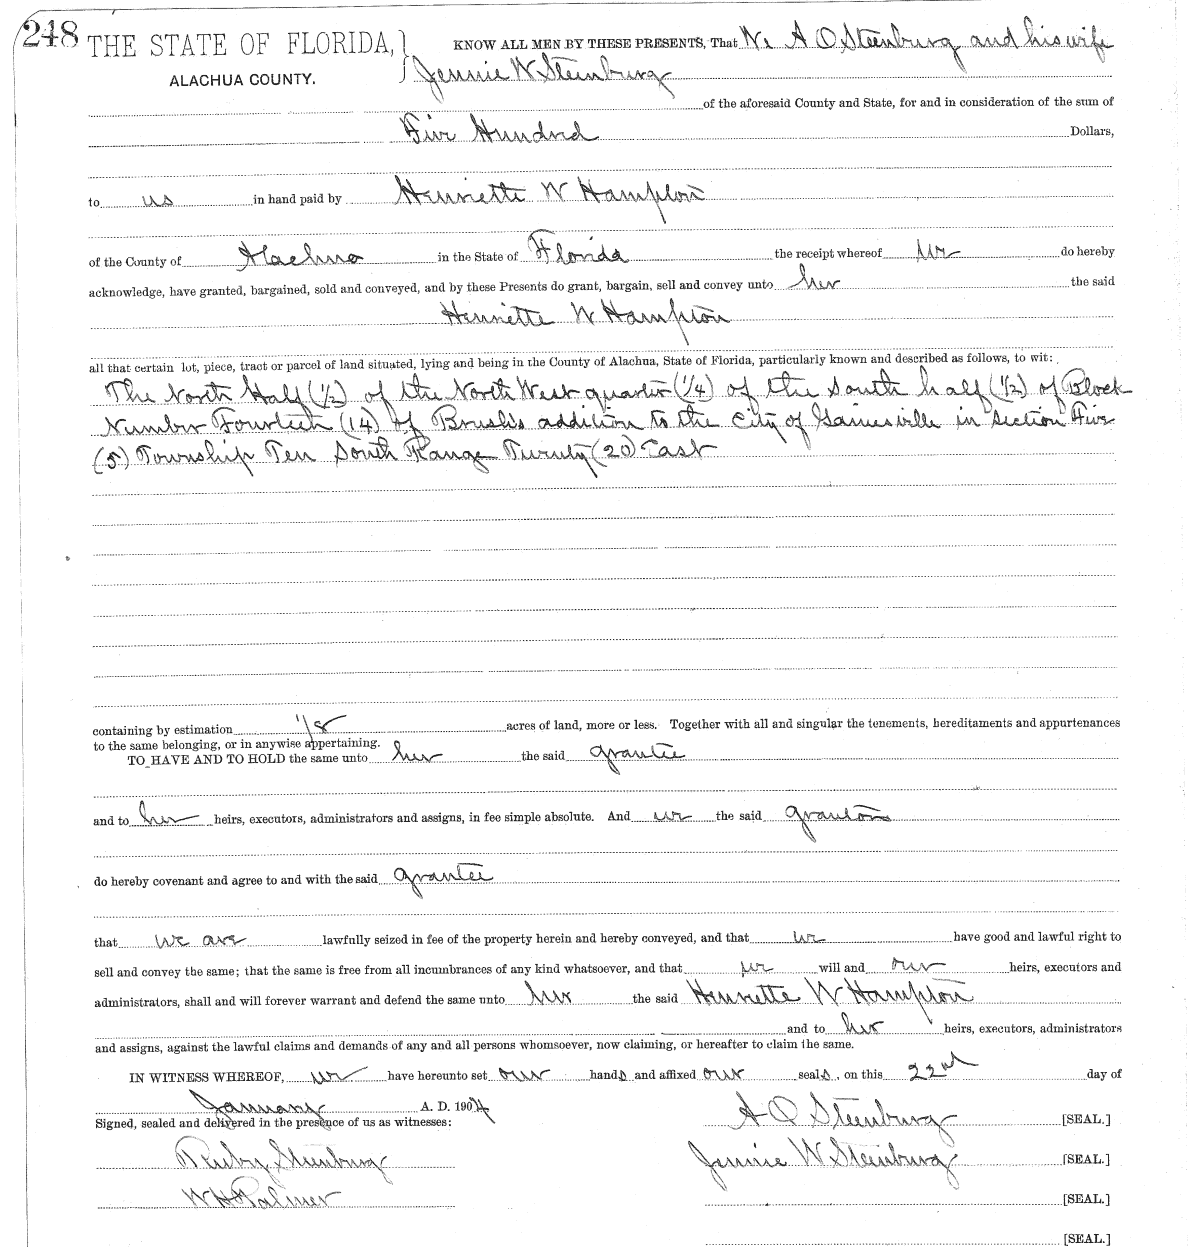 248 THE STATE OF FLORIDA, KNOW ALL MEN BY THESE PRESENTS, That We A O Steenburg and his wife
ALACHUA COUNTY. Jennie W Steenburg
of the aforesaid County and State, for and in consideration of the sum of
Five Hundred Dollars,
to us in hand paid by Henriette W Hampton
of the County of Alachua in the State of Florida the receipt whereof we do hereby
acknowledge, have granted, bargained, sold and conveyed, and by these Presents do grant, bargain, sell and convey unto her the said
Henriette W Hampton
all that certain lot, piece, tract or parcel of land situated, lying and being in the County of Alachua, State of Florida, particularly known and described as follows, to wit:
The North Half (1/2) of the North West quarter (1/4) of the South half (1/2) of Block
Number Fourteen (14) of Brush's addition to the City of Gainesville in Section Five
(5) Township Ten South Range Twenty (20) East
containing by estimation 1/8 acres of land, more or less. Together with all and singular the tenements, hereditaments and appurtenances
to the same belonging, or in anywise appertaining.
TO HAVE AND TO HOLD the same unto her the said grantee
and to her heirs, executors, administrators and assigns, in fee simple absolute. And we the said grantors
do hereby covenant and agree to and with the said grantee
that we are lawfully seized in fee of the property herein and hereby conveyed, and that we have good and lawful right to
sell and convey the same; that the same is free from all incumbrances of any kind whatsoever, and that we will and our heirs, executors and
administrators, shall and will forever warrant and defend the same unto her the said Henriette W Hampton
and to her heirs, executors, administrators
and assigns, against the lawful claims and demands of any and all persons whomsoever, now claiming, or hereafter to claim the same.
IN WITNESS WHEREOF, we have hereunto set our hands and affixed our seals, on this 22nd day of
January A. D. 1904
Signed, sealed and delivered in the presence of us as witnesses: A O Steenburg [SEAL.]
Ruby Steenburg Jennie W Steenburg [SEAL.]
W H Palmer [SEAL.]
[SEAL.]